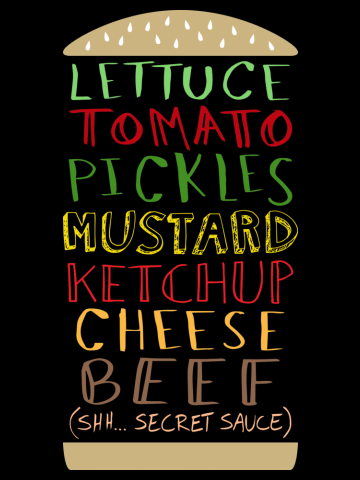 LETTUCE
TOMATTO
PICKLES
MUSTARD
KETCHUP
CHEESE
BEEF
(SHH... SECRET SAUCE)